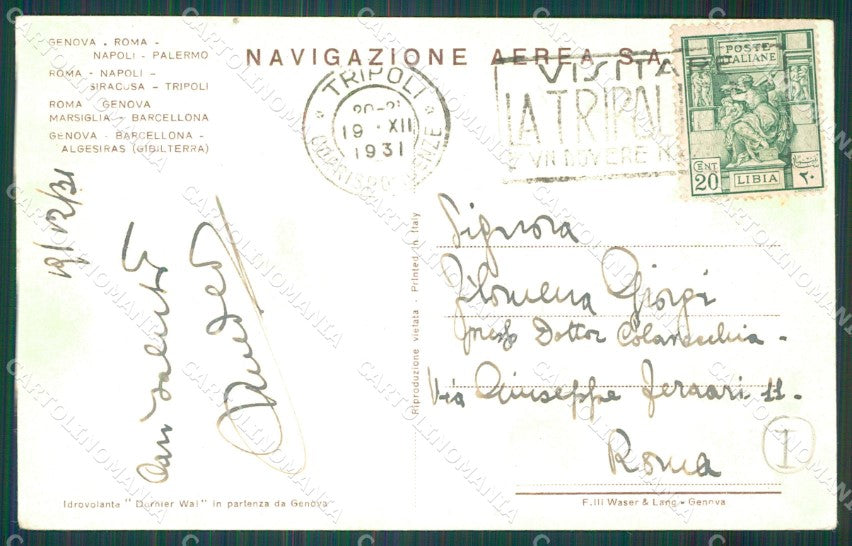 GENOVA - ROMA -
NAPOLI - PALERMO
ROMA - NAPOLI -
SIRACUSA - TRIPOLI
ROMA - GENOVA
MARSIGLIA - BARCELLONA
GENOVA - BARCELLONA -
ALGESIRAS (GIBILTERRA)
NAVIGAZIONE AEREA S.A.
TRIPOLI
19 · XII
1931
VISITA
LA TRIPOL
POSTE
ITALIANE
CENT
20
LIBIA
٢٠
19/12/31
Cari saluti
Signora
Filomena Giorgi
Dottor Colansechia -
Via Giuseppe Ferrari 11-
Roma
I
Riproduzione vietata - Printed in Italy
Idrovolante "Dornier Wal" in partenza da Genova
F.lli Waser & Lang - Genova
CARTOLINOMANIA